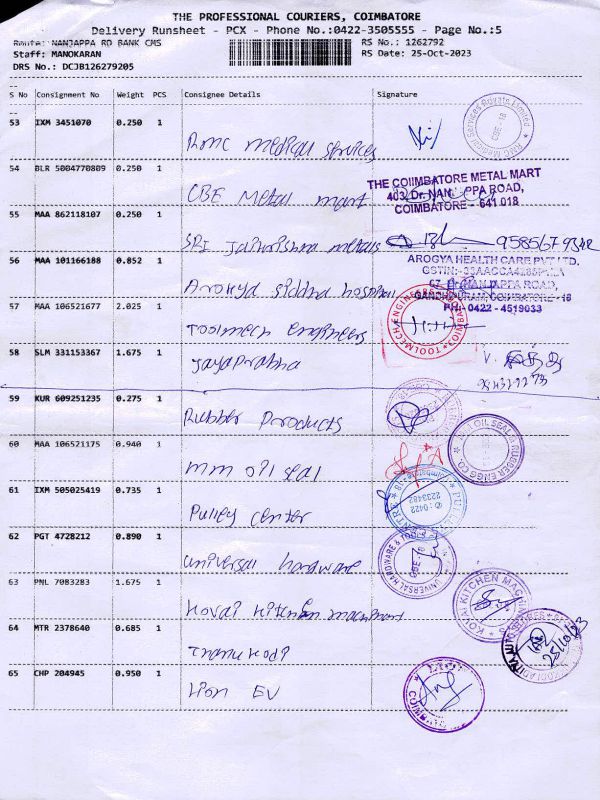 THE PROFESSIONAL COURIERS, COIMBATORE
Delivery Runsheet - PCX - Phone No.:0422-3505555 - Page No.:5
Route: NANJAPPA RD BANK CMS
RS No.: 1262792
Staff: MANOKARAN
RS Date: 25-Oct-2023
DRS No.: DCJB126279205
S No Consignment No Weight PCS Consignee Details Signature
53 IXM 3451070 0.250 1
RMC medical services
RMC Medical Services Private Limited
CBE-18
54 BLR 5004770809 0.250 1
CBE Metal mart
THE COIMBATORE METAL MART
403, Dr. NANJAPPA ROAD,
COIMBATORE - 641 018
55 MAA 862118107 0.250 1
SRI Jaikrishna metals
56 MAA 101166188 0.852 1
Arokya siddha hospital
AROGYA HEALTH CARE PVT LTD.
GANDHIPURAM, COIMBATORE - 18
PH: 0422 - 4519033
57 MAA 106521677 2.025 1
Toolmech engineers
TOOLMECH ENGINEERS
58 SLM 331153367 1.675 1
Jayaprabha
59 KUR 609251235 0.275 1
Rubber Products
60 MAA 106521175 0.940 1
mm oil seal
OIL SEAL & RUBBER ENGG CO
61 IXM 505025419 0.735 1
Pulley center
0422
2233482
62 PGT 4728212 0.890 1
universal hardware
UNIVERSAL HARDWARE & TOOLS
CBE-18
63 PNL 7083283 1.675 1
Kovai kitchen machinary
KOVAI KITCHEN MACHINE
64 MTR 2378640 0.685 1
25/10/23
65 CHP 204945 0.950 1
Lion EV